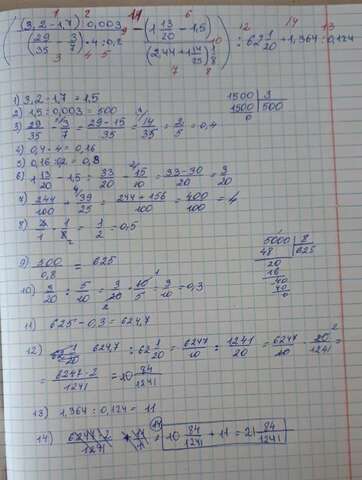 1 2 11 6 12 14 13
( (3,2 - 1,7) : 0,003 / (29/35 - 3/7) · 4 : 0,2 - (1 13/20 - 1,5) / (2,44 + 1 14/25) · 1/8 ) : 62 1/20 + 1,364 : 0,124
3 4 5 7 8 9 10
1) 3,2 - 1,7 = 1,5
2) 1,5 : 0,003 = 500
1500 | 3
1500 | 500
0
3) 29/35 - 3/7 = 29 - 15/35 = 14/35 = 2/5 = 0,4
4) 0,4 · 4 = 0,16
5) 0,16 : 02 = 0,8
6) 1 13/20 - 1,5 = 33/20 - 15/10 = 33-30/20 = 3/20
7) 244/100 + 39/25 = 244 + 156/100 = 400/100 = 4
8) 4/1 · 1/8 = 1/2 = 0,5
5000 | 8
48 | 625
20
16
40
40
0
9) 500/0,8 = 625
10) 3/20 : 5/10 = 3/20 · 10/5 = 3/10 = 0,3
11) 625 - 0,3 = 624,7
12) 624,7 : 62 1/20 = 6247/10 : 1241/20 = 6247/10 · 20/1241 =
= 6247 · 2/1241 = 10 84/1241
13) 1,364 : 0,124 = 11
14) 10 84/1241 + 11 = 21 84/1241